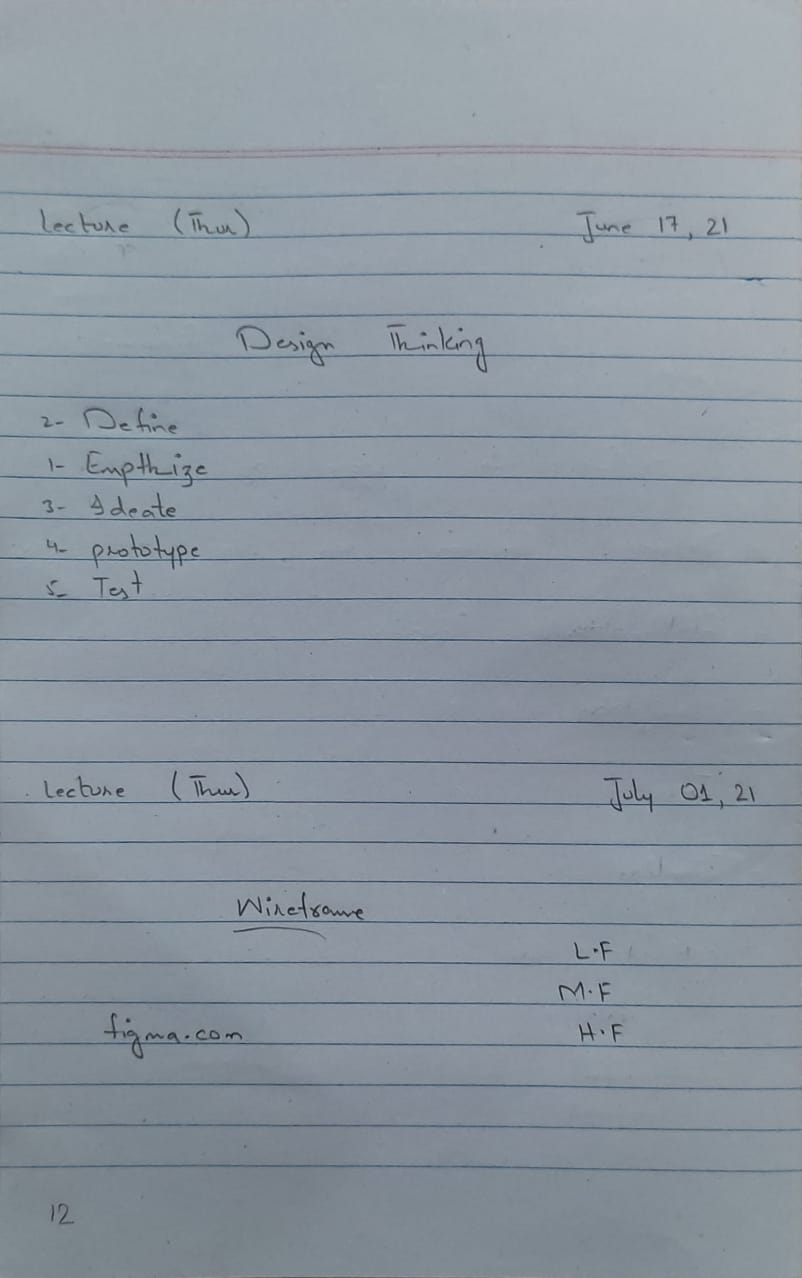 Lecture (Thur) June 17, 21
Design Thinking
2- Define
1- Empthize
3- Ideate
4- prototype
5- Test
Lecture (Thur) July 01, 21
Wireframe
L.F
M.F
figma.com H.F
12